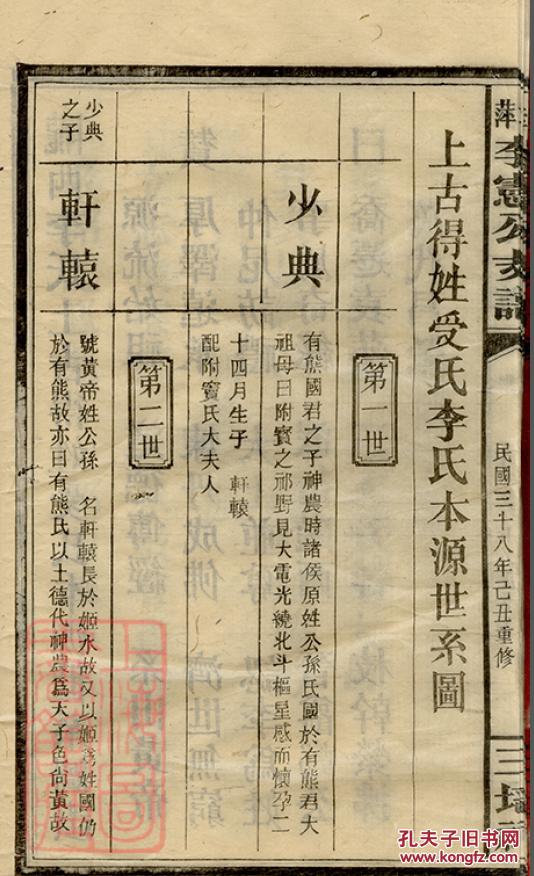 李憲公支譜
民國三十八年己丑重修
三
上古得姓受氏李氏本源世系圖
第一世
少典
有熊國君之子神農時諸侯原姓公孫氏國於有熊君大
祖母曰附寶之祁野見大電光繞北斗樞星感而懷孕二
十四月生子 軒轅
配附寶氏大夫人
第二世
少典
之子
軒轅
號黃帝姓公孫 名軒轅長於姬水故又以姬為姓國仍
於有熊故亦曰有熊氏以土德代神農爲天子色尙黃故
孔夫子旧书网
www.kongfz.com